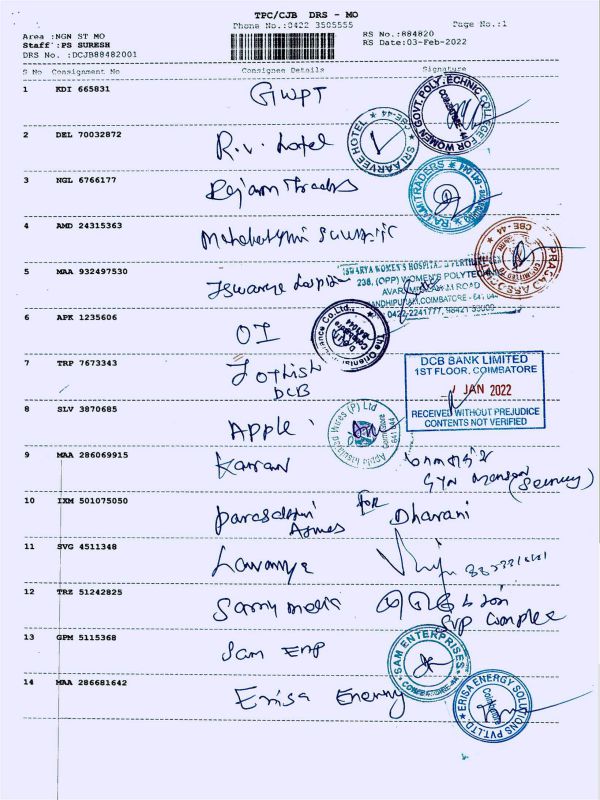 TPC/CJB DRS - MO
Phone No.:0422 3505555
Page No.:1
Area :NGN ST MO
RS No.:884820
Staff :PS SURESH
RS Date:03-Feb-2022
DRS No. :DCJB88482001
S No Consignment No Consignee Details Signature
1 KDI 665831 GWPT
GOVT. POLYTECHNIC COLLEGE FOR WOMEN
2 DEL 70032872 R.V. Hotel
SRI AARVEE HOTEL ★ CBE-44 ★
3 NGL 6766177 Rajam Traders
RAJAM TRADERS
4 AMD 24315363
CBE-44
5 MAA 932497530
ISWARYA WOMEN'S HOSPITAL & FERTILITY
238, (OPP) WOMEN'S POLYTECHNIC
ROAD
GANDHIPURAM, COIMBATORE - 641 044
0422-2241777,
6 APK 1235606 OI
The Oriental Insurance Co.Ltd.,
7 TRP 7673343
DCB
DCB BANK LIMITED
1ST FLOOR, COIMBATORE
JAN 2022
RECEIVED WITHOUT PREJUDICE
CONTENTS NOT VERIFIED
8 SLV 3870685 Apple
Apple Insulated Wires (P) Ltd
Coimbatore
641 044
9 MAA 286069915 Karan
10 IXM 501075050 for Dharani
11 SVG 4511348 Lavanya
12 TRZ 51242825
SVP Complex
13 GPM 5115368 Sam Enp
SAM ENTERPRISES
14 MAA 286681642 Erisa Energy
ERISA ENERGY SOLUTIONS PVT.LTD
Coimbatore